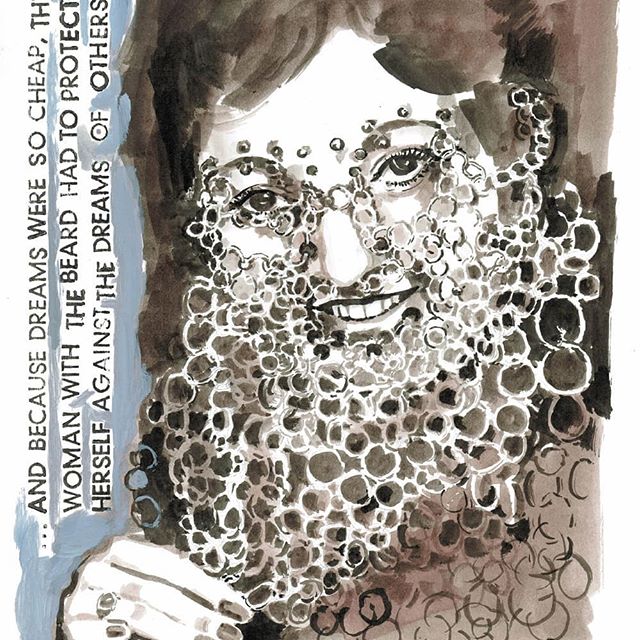 ... AND BECAUSE DREAMS WERE SO CHEAP, TH
WOMAN WITH THE BEARD HAD TO PROTECT
HERSELF AGAINST THE DREAMS OF OTHERS